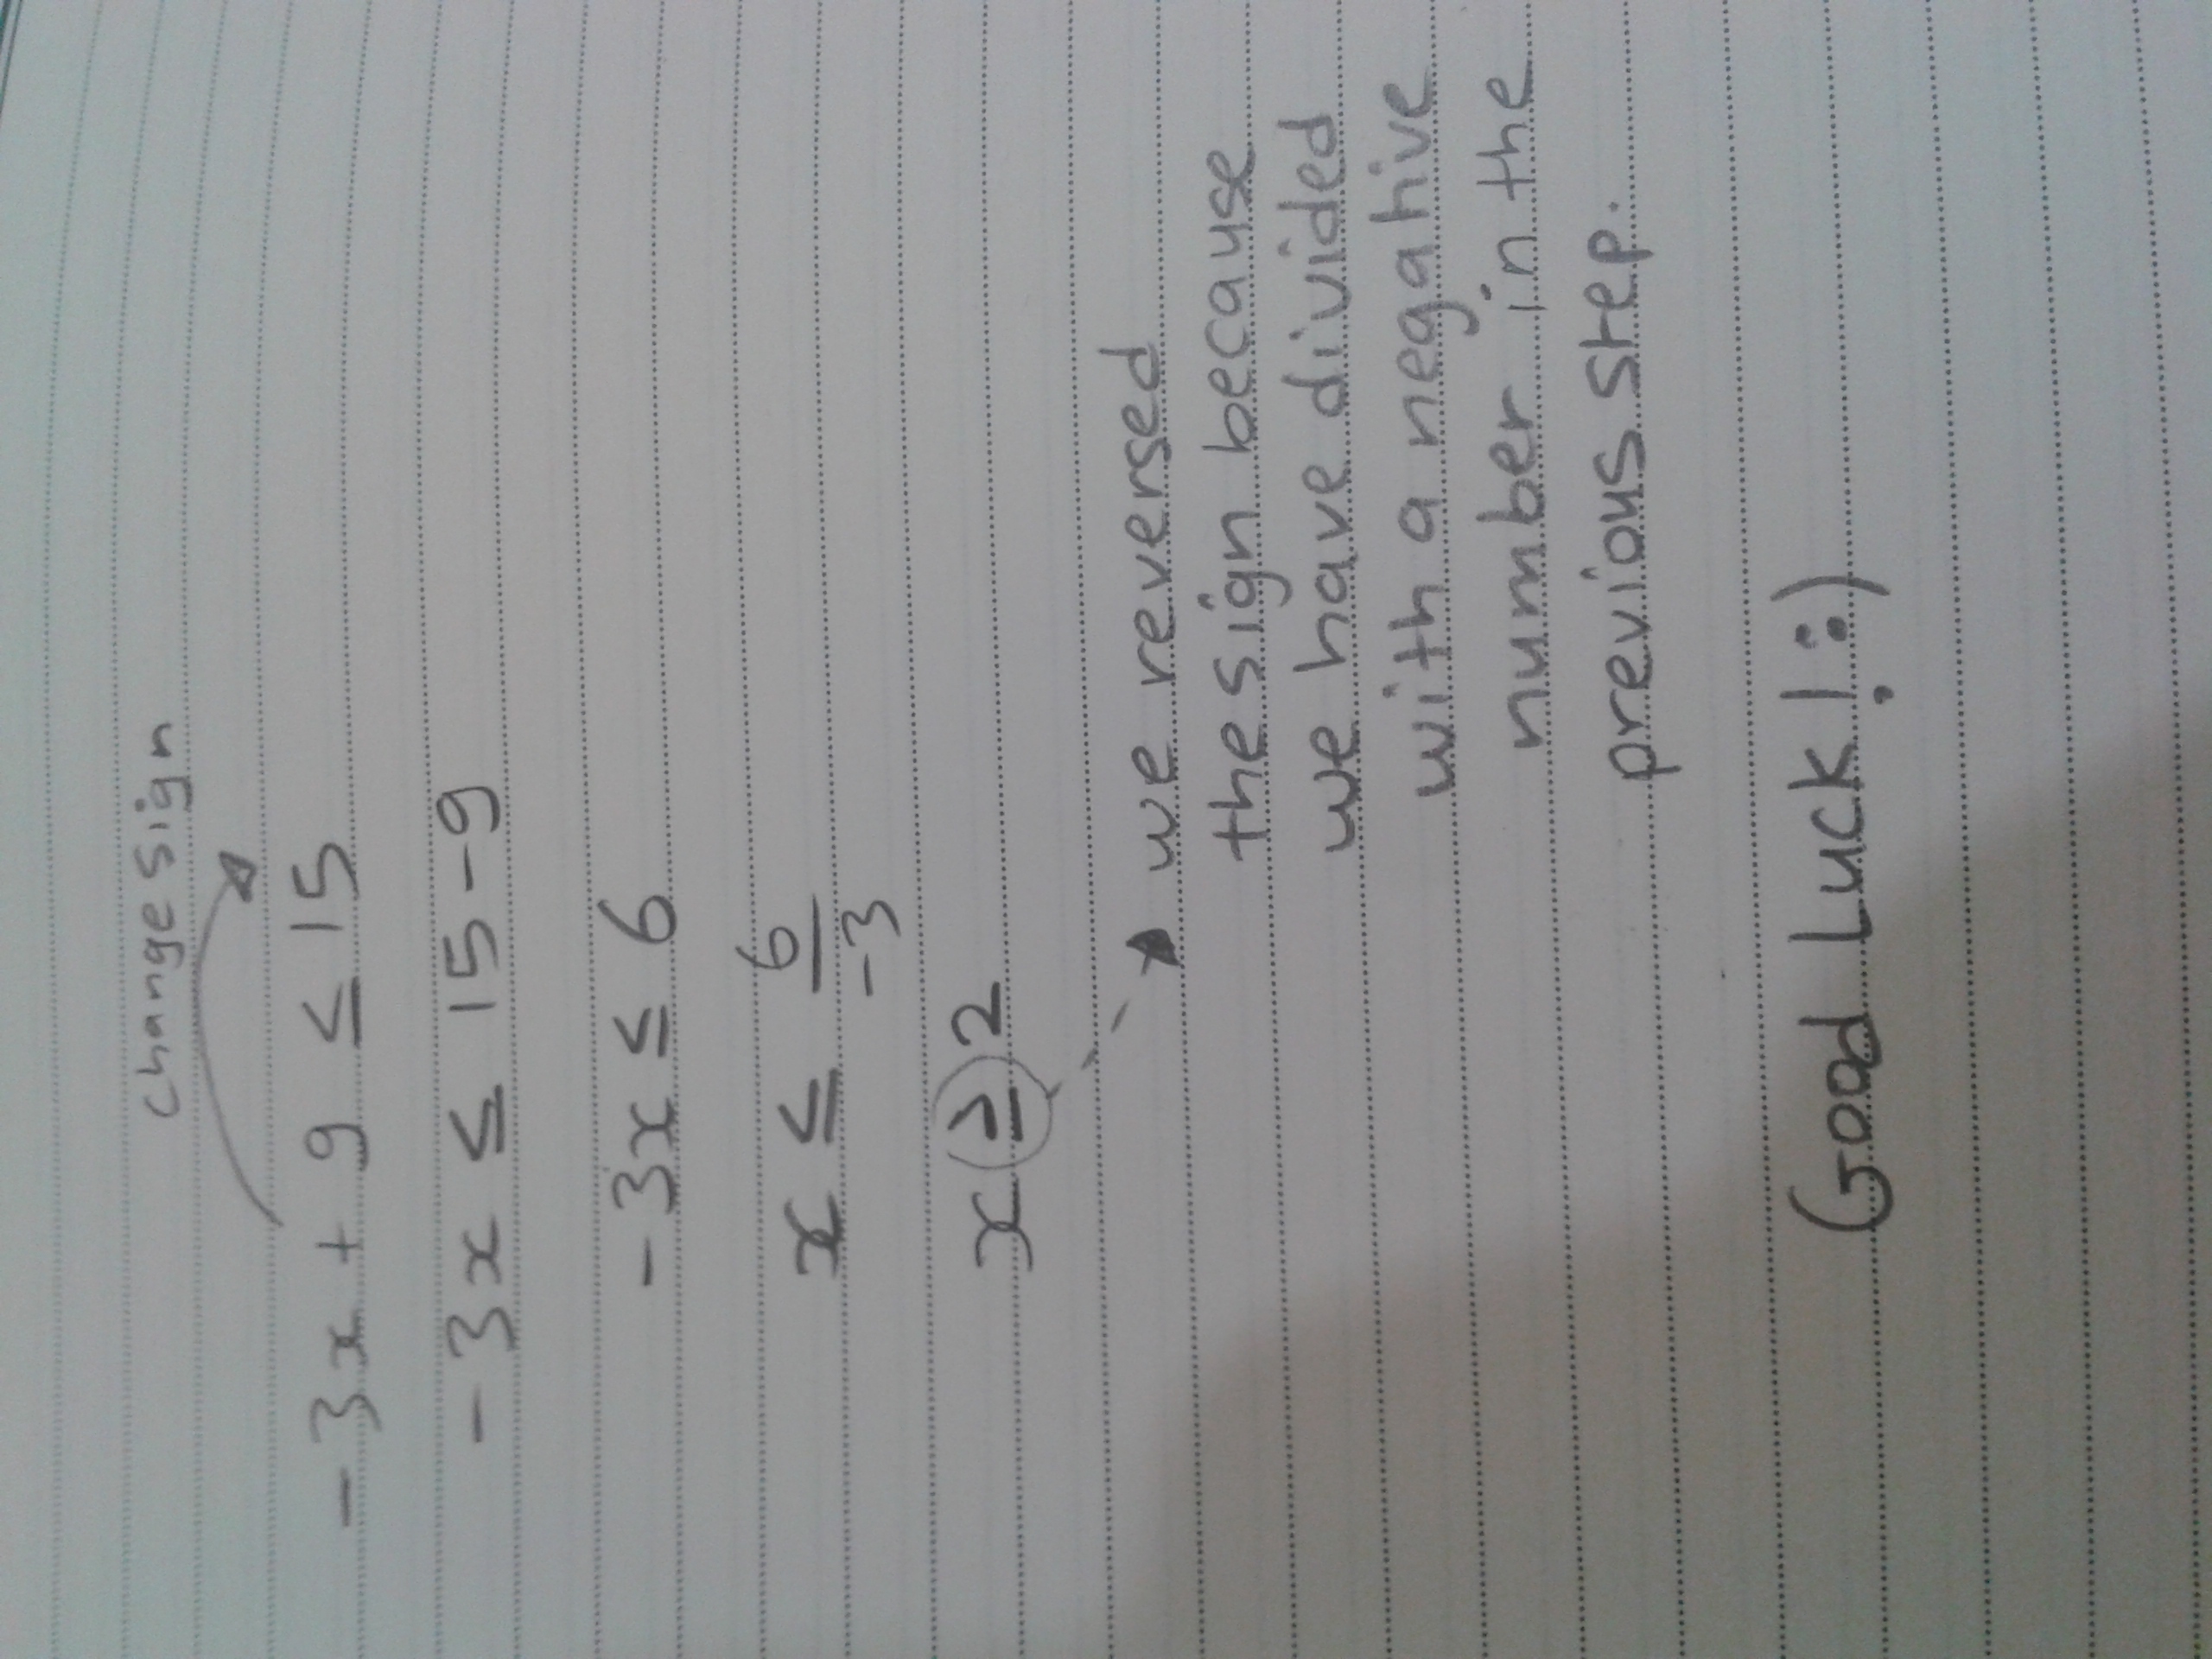 change sign
-3x + 9 ≤ 15
-3x ≤ 15-9
-3x ≤ 6
x ≤ 6/-3
x ≥ 2
we reversed
the sign because
we have divided
with a negative
number in the
previous step.
Good Luck! :)